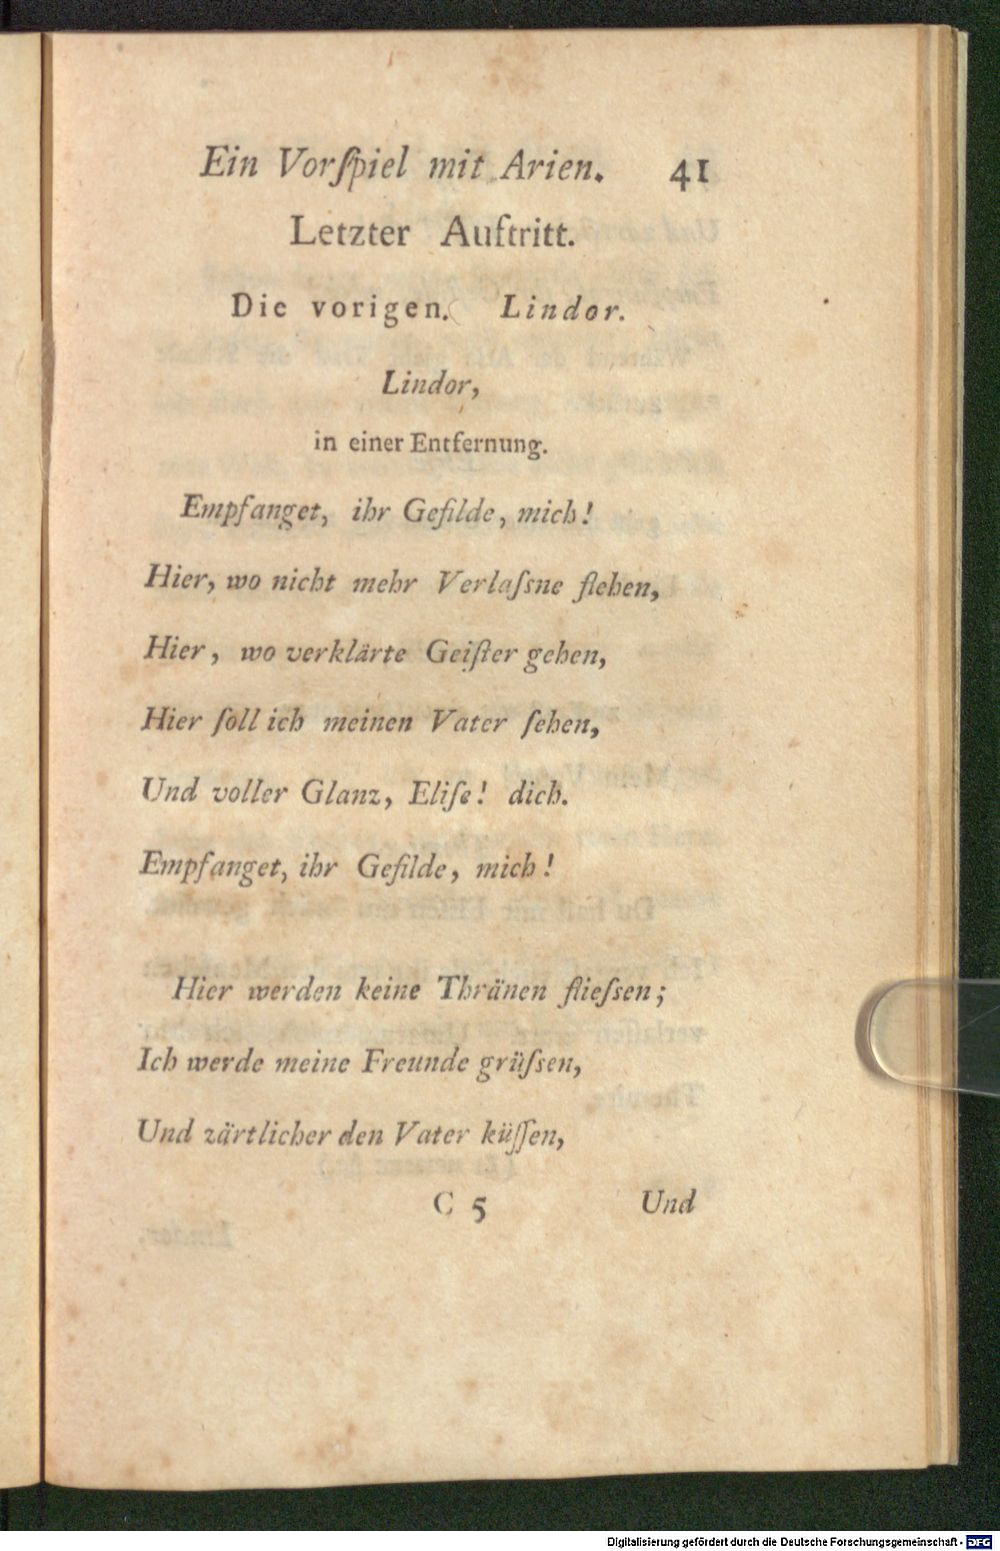 Ein Vorſpiel mit Arien. 41
Letzter Auftritt.
Die vorigen. Lindor.
Lindor,
in einer Entfernung.
Empfanget, ihr Gefilde, mich!
Hier, wo nicht mehr Verlaſsne flehen,
Hier, wo verklärte Geiſter gehen,
Hier ſoll ich meinen Vater ſehen,
Und voller Glanz, Eliſe! dich.
Empfanget, ihr Gefilde, mich!
Hier werden keine Thränen flieſsen;
Ich werde meine Freunde grüſsen,
Und zärtlicher den Vater küſſen,
C 5 Und
Digitalisierung gefördert durch die Deutsche Forschungsgemeinschaft - DFG